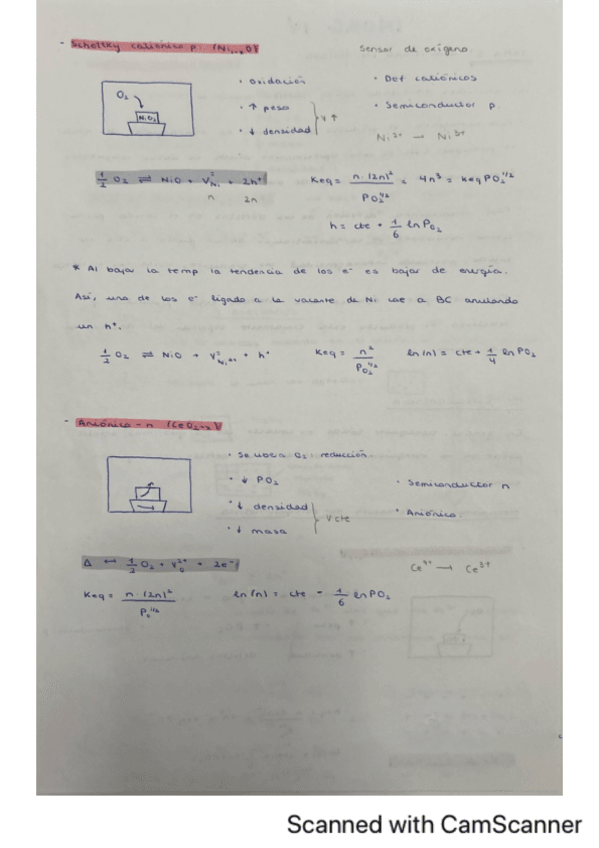 - Schottky catiónico p. (Ni₁₋ₓO)
Sensor de oxígeno
O₂
NiO₂
· Oxidación
· ↑ peso
· ↓ densidad
} V ↑
· Def catiónicos
· Semiconductor p.
Ni²⁺ → Ni³⁺
½ O₂ ⇌ NiO + V²⁻Ni + 2h⁺
n 2n
Keq = n·(2n)² / PO₂^1/2 = 4n³ = Keq PO₂^1/2
h = cte + 1/6 ln PO₂
* Al bajar la temp la tendencia de los e⁻ es bajar de energía.
Así, uno de los e⁻ ligado a la vacante de Ni cae a BC anulando
un h⁺.
½ O₂ ⇌ NiO + V Ni + h⁺
Keq = n² / PO₂^1/2
ln(n) = cte + 1/4 ln PO₂
- Aniónico - n (CeO₂₋ₓ)
O₂: reducción.
· ↓ PO₂
· ↓ densidad
· ↓ masa
} V cte
· Semiconductor n
· Aniónico
Δ ↔ ½ O₂ + V²⁺O + 2e⁻
Ce⁴⁺ → Ce³⁺
Keq = n·(2n)² / P^1/2
ln(n) = cte - 1/6 ln PO₂
Scanned with CamScanner